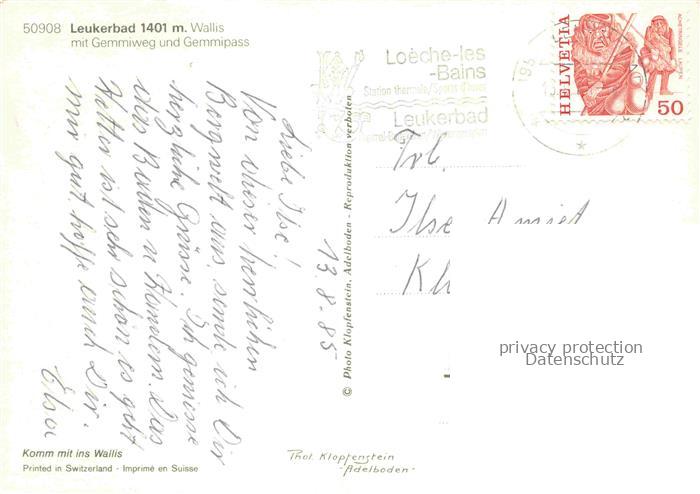 50908 Leukerbad 1401 m. Wallis
mit Gemmiweg und Gemmipass
Loèche-les
-Bains
Station thermale/Sports d'hiver
Leukerbad
HELVETIA
50
13.8.85
Liebe Ilse!
Von dieser herrlichen
Bergwelt aus, sende ich Dir
herzliche Grüsse. Ich geniesse
das Baden u Wandern. Das
Wetter ist sehr schön es geht
mir gut, hoffe auch Dir.
Elsa
© Photo Klopfenstein, Adelboden - Reproduktion verboten
Frl.
Ilse Amiet
privacy protection
Datenschutz
Komm mit ins Wallis
Printed in Switzerland - Imprimé en Suisse
Phot. Klopfenstein
-Adelboden-